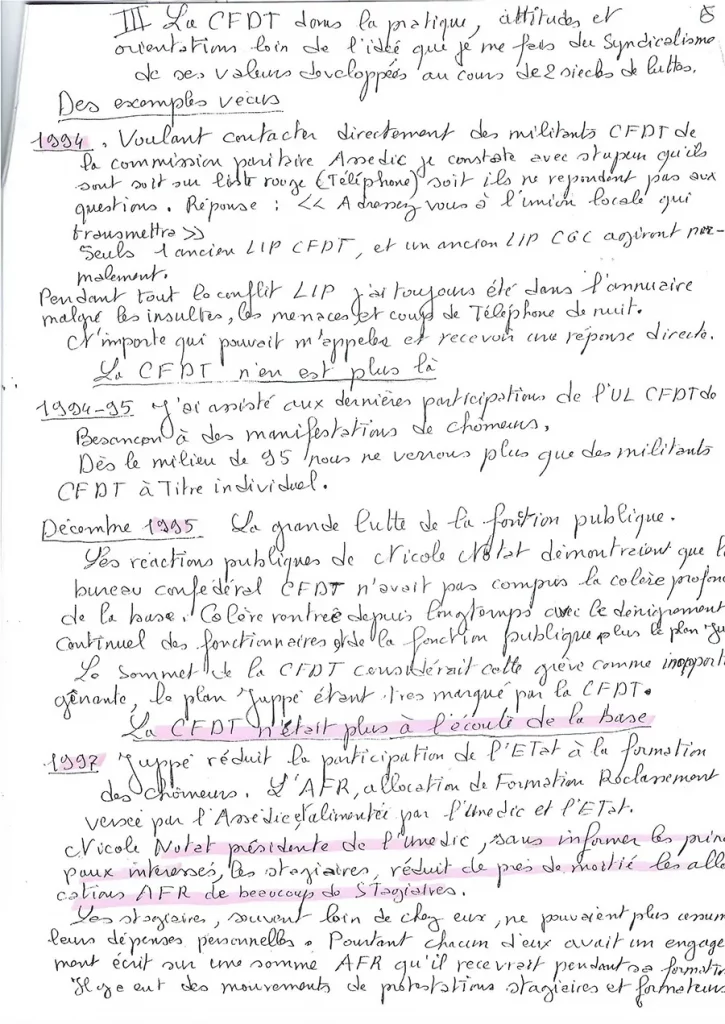 III La CFDT dans la pratique, attitudes et
orientations loin de l'idée que je me fais du Syndicalisme
de ses valeurs développées au cours de 2 siecles de luttes.
Des exemples vécus
1994. Voulant contacter directement des militants CFDT de
la commission paritaire Assedic je constate avec stupeur qu'ils
sont soit sur liste rouge (Téléphone) soit ils ne repondent pas aux
questions. Réponse : << Adressez vous à l'union locale qui
transmettra >>
Seuls 1 ancien LIP CFDT, et un ancien LIP CGC agiront nor-
malement.
Pendant tout le conflit LIP j'ai toujours été dans l'annuaire
malgré les insultes, les menaces et coups de Téléphone de nuit.
N'importe qui pouvait m'appeler et recevoir une réponse directe.
La CFDT n'en est plus là
1994-95 J'ai assisté aux dernières participations de l'UL CFDT de
Besançon à des manifestations de chômeurs,
Dès le milieu de 95 nous ne verrons plus que des militants
CFDT à Titre individuel.
Décembre 1995 La grande lutte de la fonction publique.
Les réactions publiques de Nicole Notat démontraient que l
bureau confédéral CFDT n'avait pas compris la colère profon
de la base. Colère rentrée depuis longtemps avec le dénigrement
continuel des fonctionnaires et de la fonction publique plus le plan Ju
Le sommet de la CFDT considérait cette grève comme inopport
gênante, le plan Juppé étant très marqué par la CFDT.
La CFDT n'était plus à l'écoute de la base
1997 Juppé réduit la participation de l'ETat à la formation
des chômeurs. L'AFR, allocation de Formation Reclassement
versée par l'Assedic et alimentée par l'unedic et l'ETat.
Nicole Notat présidente de l'unedic, sans informer les princ
paux intéressés, les stagiaires, réduit de près de moitié les allo
cations AFR de beaucoup de Stagiaires.
Les stagiaires, souvent loin de chez eux, ne pouvaient plus assum
leurs dépenses personnelles. Pourtant chacun d'eux avait un engage
ment écrit sur une somme AFR qu'il recevrait pendant sa formatio
Il y eut des mouvements de protestations stagiaires et formateurs